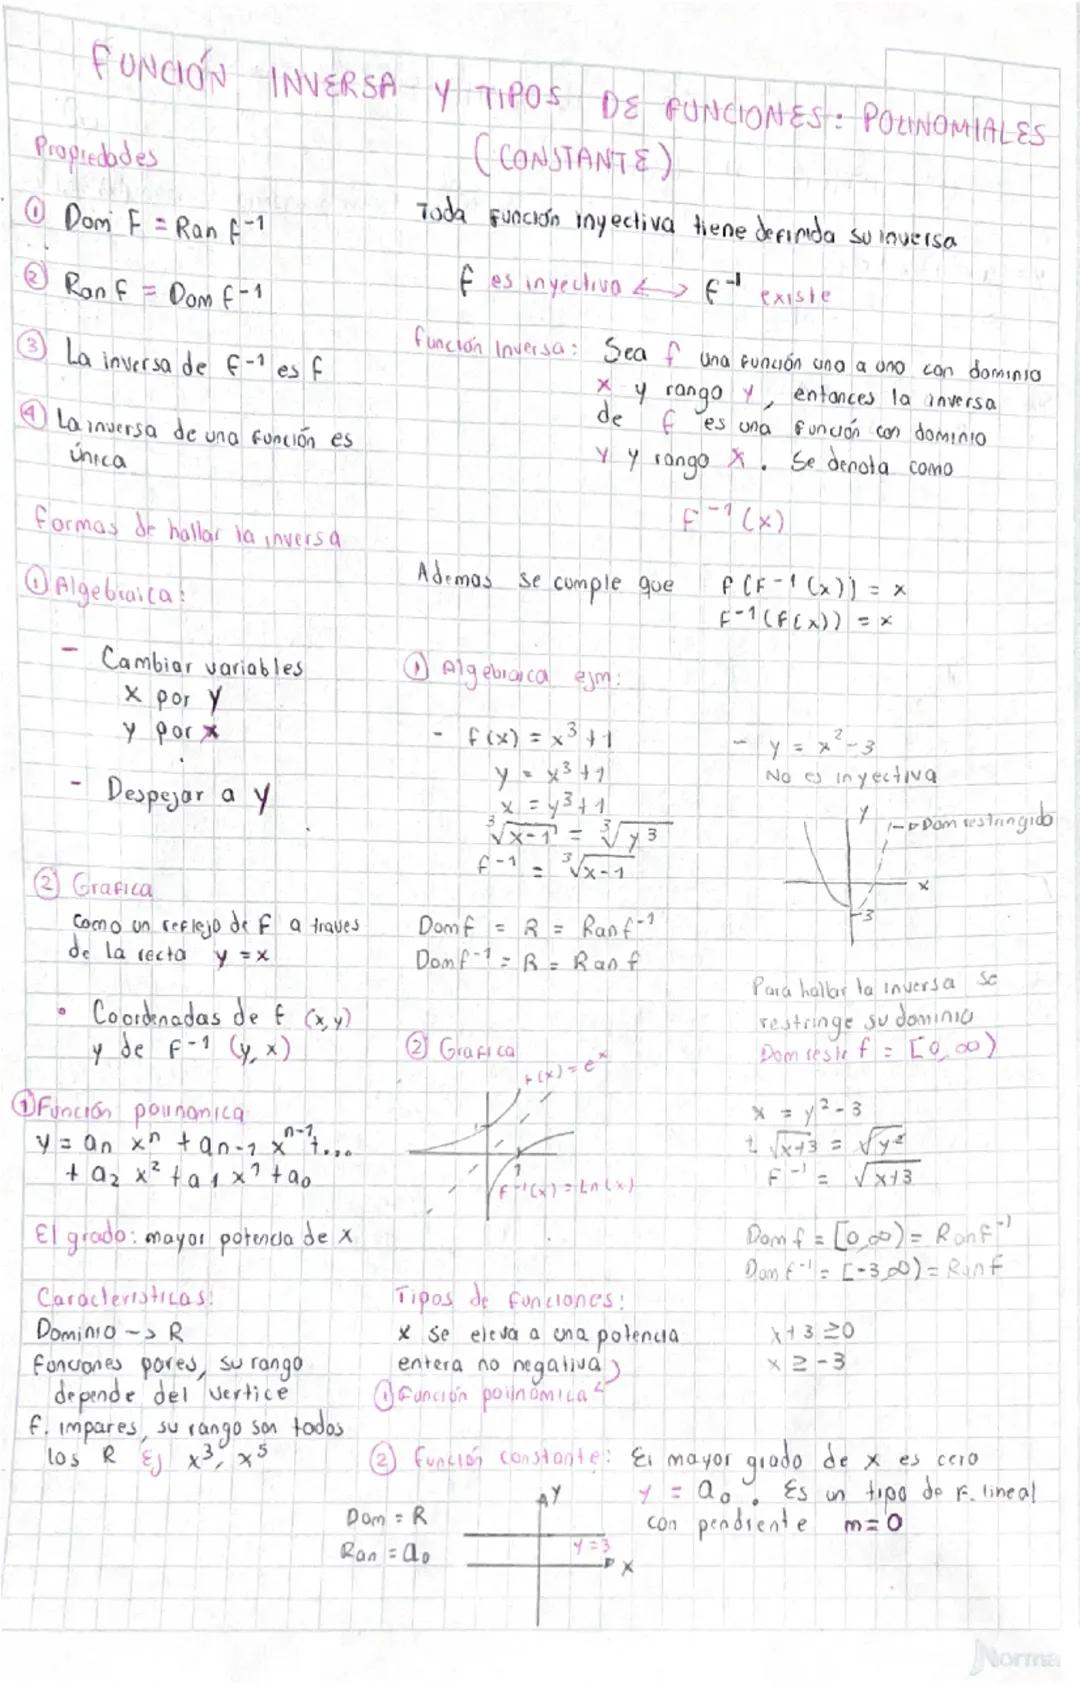 FUNCIÓN INVERSA Y TIPOS DE FUNCIONES: POLINOMIALES
(CONSTANTE)
Propiedades
① Dom F = Ran f-1
② Ran f = Dom f-1
③ La inversa de f-1 es f
④ La inversa de una función es
única
Formas de hallar la inversa
① Algebraica:
- Cambiar variables
x por y
y por x
- Despejar a y
② Grafica
como un reflejo de F a traves
de la recta y = x
• Coordenadas de f (x,y)
y de F-1 (y, x)
Toda función inyectiva tiene definida su inversa
f es inyectiva <—> f-1 existe
función Inversa: Sea f una función uno a uno con dominio
x y rango y, entonces la inversa
de f es una función con dominio
y y rango x. Se denota como
F-1 (x)
Ademas se cumple que f(F-1(x)) = x
F-1(f(x)) = x
① Algebraica ejm:
- f(x) = x³+1
y = x³+1
x = y³+1
³√x-1 = ³√y³
f-1 = ³√x-1
Dom f = R = Ran f-1
Dom f-1 = R = Ran f
- y = x²-3
No es inyectiva
y
Dom restringido
x
-3
Para hallar la inversa se
restringe su dominio
Dom restr f = [0,∞)
x = y²-3
± √x+3 = √y²
F-1 = √x+3
Dom f = [0,∞) = Ran F-1
Dom f-1 = [-3,∞) = Ran f
x+3 ≥0
x ≥ -3
② Grafica
f(x) = e^x
1
F-1(x) = Ln(x)
① Función polinomica
y = an xn + an-1 xn-1 + ...
+ a2 x² + a1 x1 + a0
El grado: mayor potencia de x
Caracteristicas:
Dominio -> R
Funciones pares, su rango
depende del vertice
f. impares, su rango son todos
los R Ej x³, x⁵
Tipos de funciones:
x se eleva a una potencia
entera no negativa
① Función polinómica
② función constante: El mayor grado de x es cero
y = a0. Es un tipo de F. lineal
con pendiente m=0
Dom = R
Ran = a0
y
y=3
x
Norma